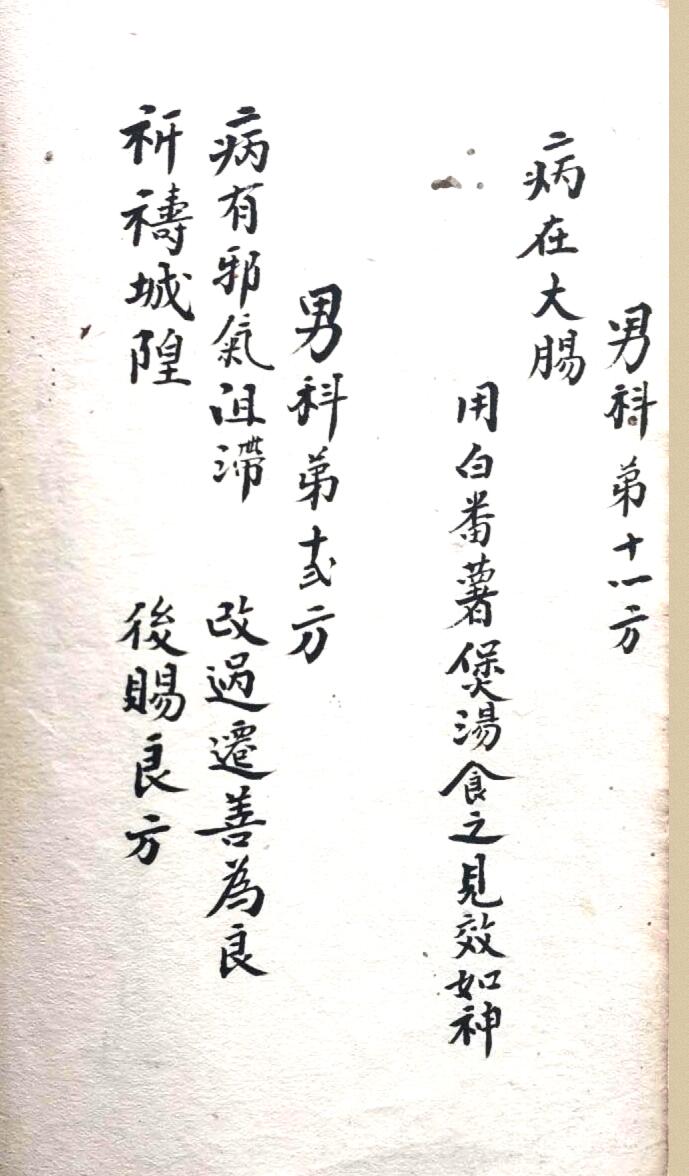 男科第十一方
病在大腸
用白番薯煲湯食之見效如神
男科第十弍方
病有邪氣沮滯 改過遷善為良
祈禱城隍 後賜良方